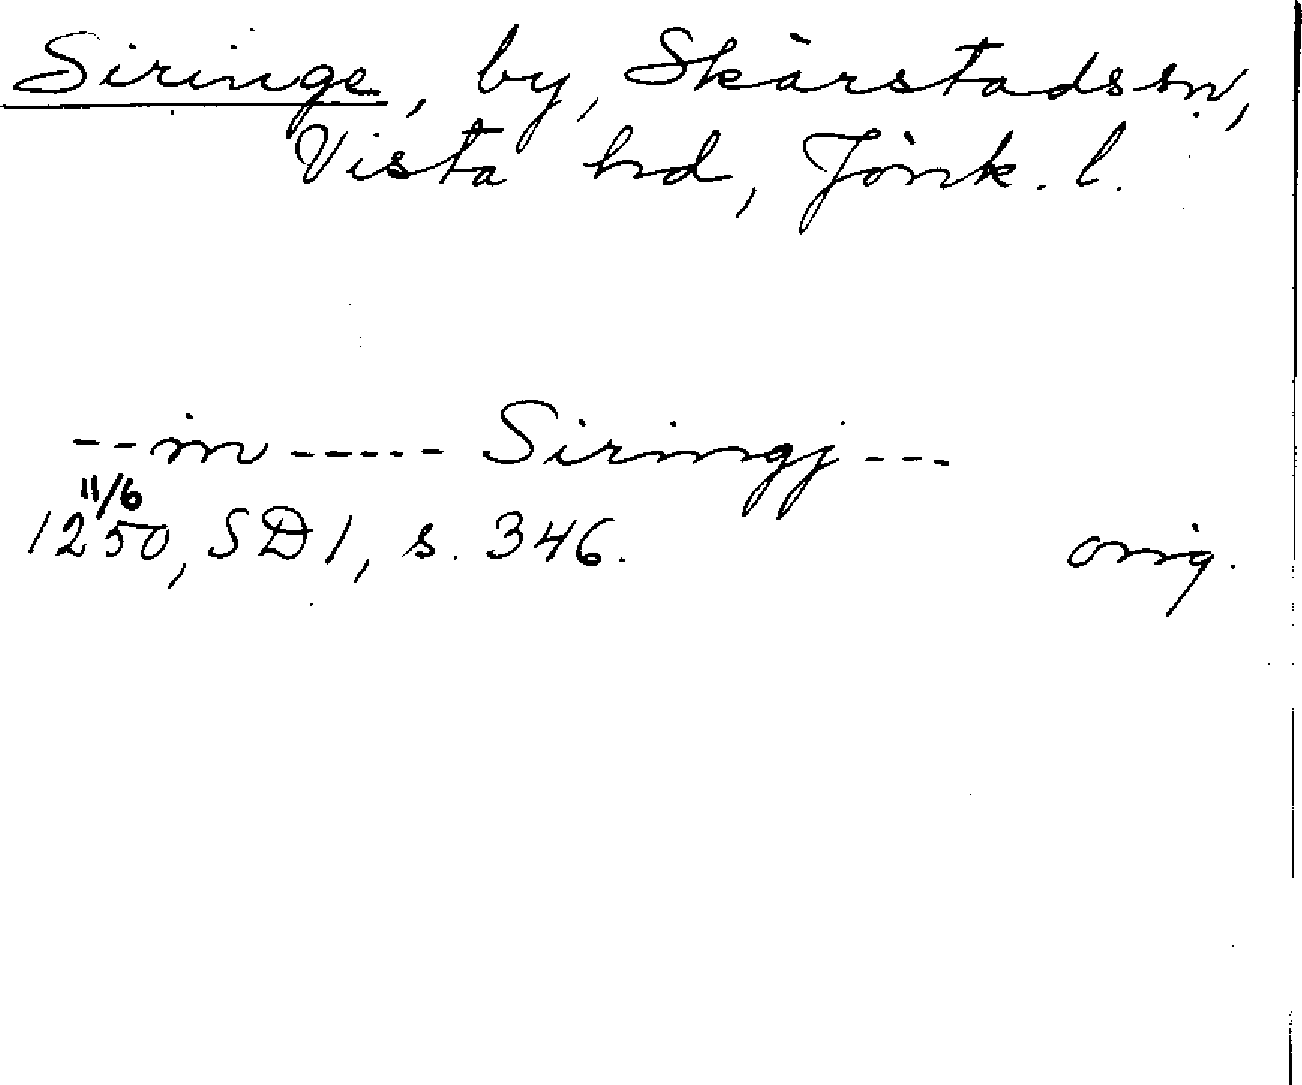 Siringe, by, Skärstads sn,
Vista hd, Jönk. l.
-- in ----- Siringj ---
11/6
1250, SD 1, s. 346. orig.